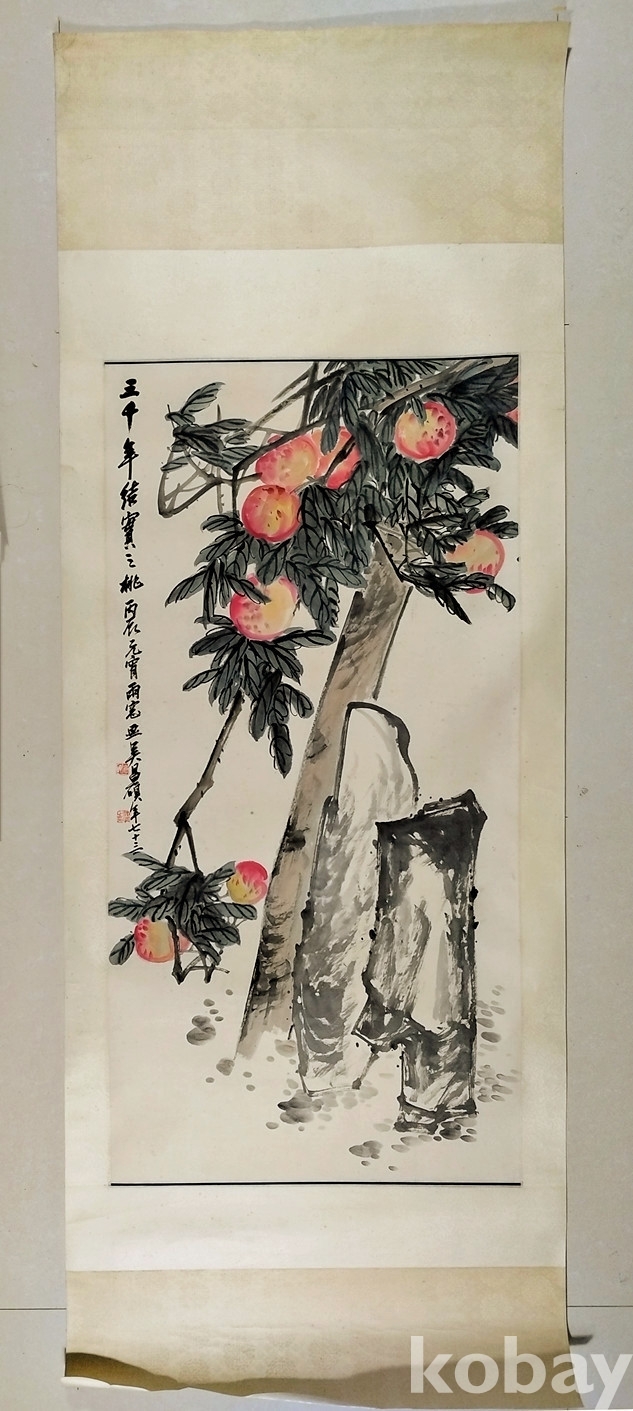 三千年结實之桃丙辰元宵雨窗吴昌碩年七十三
kobay